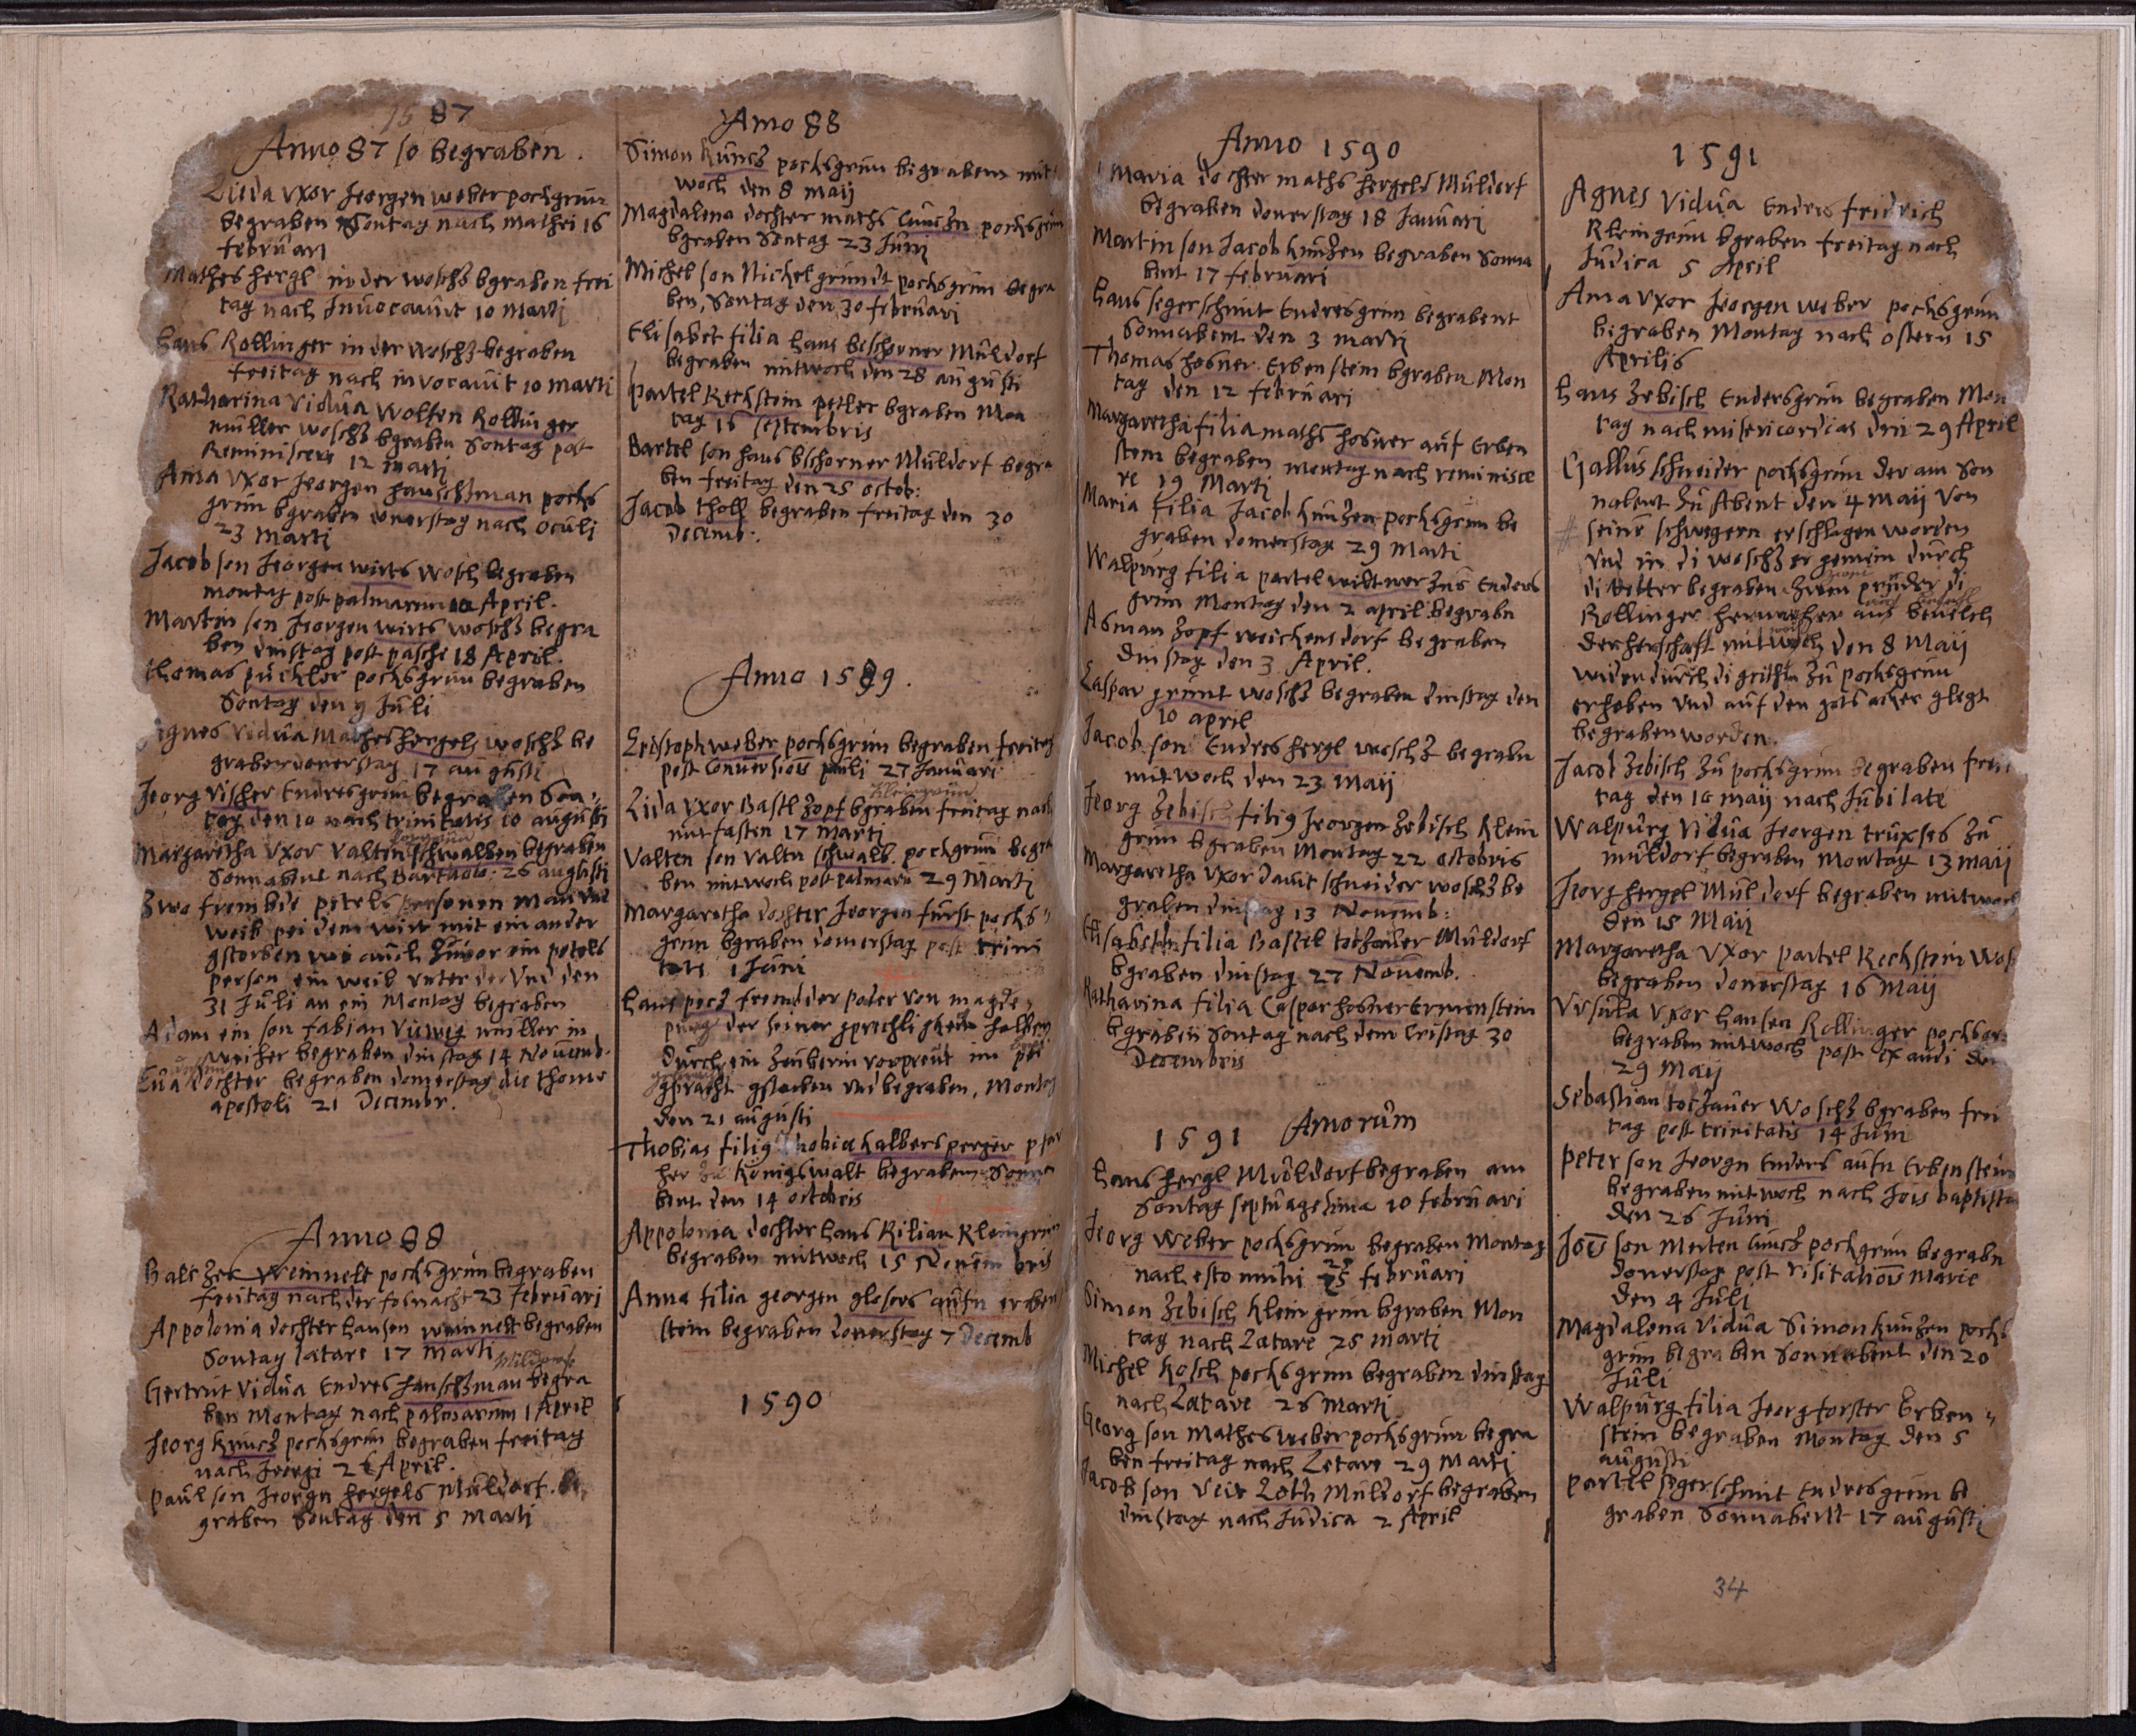 1587
Anno 87 so begraben.
Lieda vxor Jeorgen weber pochgrün
begraben Sontag nach mathei 16
februari
Mathes hergl in der woschz bgraben frei
tag nach Jnuocauit 10 Marti
hans Rollinger in der woschz begraben
freitag nach invocauit 10 marti
Katharina vidua wolfen Rollinger
müller woschz bgraben Sontag post
Reminiscere 12 marti
Anna vxor Jeorgen hauschman pochs
grün bgraben donerstag nach oculi
23 Marti
Jacob son Jeorgen wirts wosch begraben
montag post palmarum 10 April.
Martin son Jeorgen wirts woschz begra
ben dinstag post pasche 18 April.
thomas pückler pochsgrün begraben
Sontag den 9 Juli
Agnes vidua Mathes hergels woschz be
graben donerstag 17 augusti
Jeorg vischer Endresgrün begraben Son
tag den 10 nach trinitatis 10 augusti
Margaretha vxor valtin schwalben begraben
Sonnabent nach Bartholo: 26 augusti
Zwo frembde petels personen man vnd
weib pei dem wirt mit ein ander
gstorben wi auch zuuor ein petels
person ein weib vnter der vnd den
31 Juli an ein Montag begraben
Adam ein son fabian viewig müller in
weiher begraben dinstag 14 Nouemb.
Eua dochter begraben donerstag die thome
apostoli 21 Decembr.
Anno 88
Baltzer Weinnelt pochsgrün begraben
freitag nach der fasnacht 23 februari
Appolonia dochter hansen weinnelt begraben
Sontag latare 17 Marti
Gertrut vidua Endres hauschman begra
ben Montag nach palmarum 1 April
Jeorg kuncz pochsgrün begraben freitag
nach Jeorgi 26 April.
Paul son Jeorgn hergels Müldorf be
graben Sontag den 5 Marti
Anno 88
Simon kuncz pochsgrün begraben mit
woch den 8 maij
Magdalena dochter maths Cunczn pochsgrün
bgraben Sontag 23 Juni
Michel son Nickel gründt pochsgrün begra
ben, Sontag den 30 februari
Elisabet filia hans beschorner Müldorf
begraben mitwoch den 28 augusti
Partel Reckstein petler bgraben Mon
tag 16 septembris
Bartel son hans bschorner Müldorf begra
ben freitag den 25 octob:
Jacob tholl begraben freitag den 30
Decemb:
Anno 1589.
Cristoph weber pochsgrün begraben freitag
post Conversiois pauli 27 Januari
Kleingrün
Lida vxor Bastl Zopf bgraben freitag nach
mit fasten 17 marti
Valten son valtn schwalb pochgrün begra
ben mitwoch post palmaru 29 Marti
Margaretha dochter Jeorgen fürst pochs
grün bgraben donerstag post trini
tati 1 Juni
hans pecz fremder pader von magde
purg der seiner gprechligkeit halben
durch ein Zeuberin vorpreut im pei
gpracht gstorben vnd begraben, Montag
den 21 augusti
Thobias filig Thobia kalbersperger pfar
her zu Königswalt begraben Sonna
bent den 14 octobris
Appolonia dochter hans Kilian Kleingrün
begraben mitwoch 15 Nouem bris
Anna filia georgen glosers aufn erben
stein begraben donerstag 7 Decemb
1590
Anno 1590
Maria dochter maths hergels Müldorf
begraben donerstag 18 Januari
Martin son Jacob kunzen begraben Sonna
bent 17 februari
hans segerschmit Endresgrün begrabent
Sonnabent den 3 marti
Thomas hosner Erbenstein bgraben Mon
tag den 12 februari
Margaretha filia maths hosner auf Erben
stein begraben montag nach reminisce
re 19 Marti
Maria filia Jacob kunzen pochsgrün be
graben donnerstag 29 Marti
Walpurg filia partel widtmer zus Enders
grün Montag den 2 april begrabn
Asman Zopf weickensdorf begraben
dinstag den 3 April.
Caspar grünt woschz begraben dinstag den
10 april
Jacob son Endres hergl woschz begrabn
mitwoch den 23 maij
Jeorg Zebisch filig Jeorgen Zebisch Klein
grün bgraben Montag 22 octobris
Margaretha vxor Dauit schneider woschz be
graben dinstag 13 Nouemb:
Elisabeth filia Bastel tochauer Müldorf
bgraben dinstag 27 Nouemb.
Katharina filia Caspar hosner Ermenstein
bgraben Sontag nach dem Cristag 30
Decembris
1591 Annorum
hans hergl Müldorf begraben am
Sontag septuagesima 10 februari
Jeorg weber pochsgrün begraben Montag
nach esto mihi 25 februari
Simon Zebisch Kleingrün bgraben Mon
tag nach Latare 25 marti
Michel Rosch pochsgrün begraben dinstag
nach Latare 26 Marti
Georg son Mathes weber pochsgrün begra
ben freitag nach Letare 29 Marti
Jacob son veit Loth Müldorf begraben
dinstag nach Judica 2 April
1591
Agnes vidua Endres fridrich
Kleingrün bgraben freitag nach
Judica 5 April
Anna vxor Jeorgen weber pochsgrün
begraben Montag nach ostern 15
Aprilis
hans Zebisch Endersgrün begraben Mon
tag nach misericordias den 29 April
Gallus schneider pochsgrün der am Son
nabent zu Abent den 4 maij von
# seine schwegern erschlagen worden
vnd in di woschz er gemein durch
di vetter begraben zwen prüder di
Rollinger hernacher aus beuelch
der herschaft mitwoch den 8 Maij
wider durch di grichtn zu pochsgrün
erhoben vnd auf den gots acker glegt
begraben worden.
Jacob Zebisch zu pochsgrün begraben frei
tag den 10 maij nach Jubilate
Walpurg vidua Jeorgen truxses zu
müldorf begraben Montag 13 maij
Jeorg hergel Müldorf begraben mitwoch
den 15 Maij
Margaretha vxor partel Reckstein Wos
begraben donerstag 16 Maij
Vrsula vxor hansen Rollinger pochsgr
begraben mitwoch post exaudi den
29 Maij
Sebastian tochauer Woschz bgraben frei
tag post trinitatis 14 Juni
Peter son Jeorgn Enders aufn Erbenstein
begraben mitwoch nach Jois baptista
den 26 Juni
Jois son Merten Cuncz pochgrün begrabn
donerstag post visitatiois Marie
den 4 Juli
Magdalena vidua Simon kunzen pochs
grün begraben Sonnabent den 20
Juli
Walpurg filia Jeorg forster Erben
stein begraben Montag den 5
augusti
Partel segerschmit Endresgrün be
graben Sonnabent 17 augusti
34